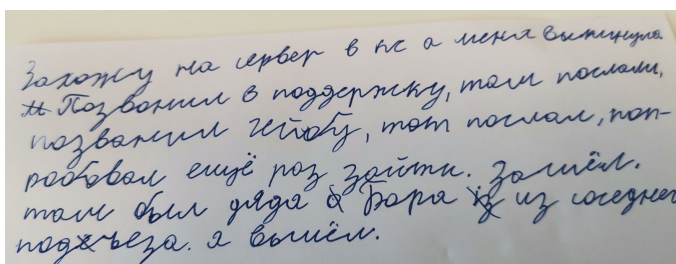 Захожу на сервер в кс а меня выкинуло.
Позвонил в поддержку, там послали,
позвонил Гейбу, тот послал, поп-
робовал ещё раз зайти. Зашёл.
там был дядя Боря из соседнег
подъеза. я вышел.